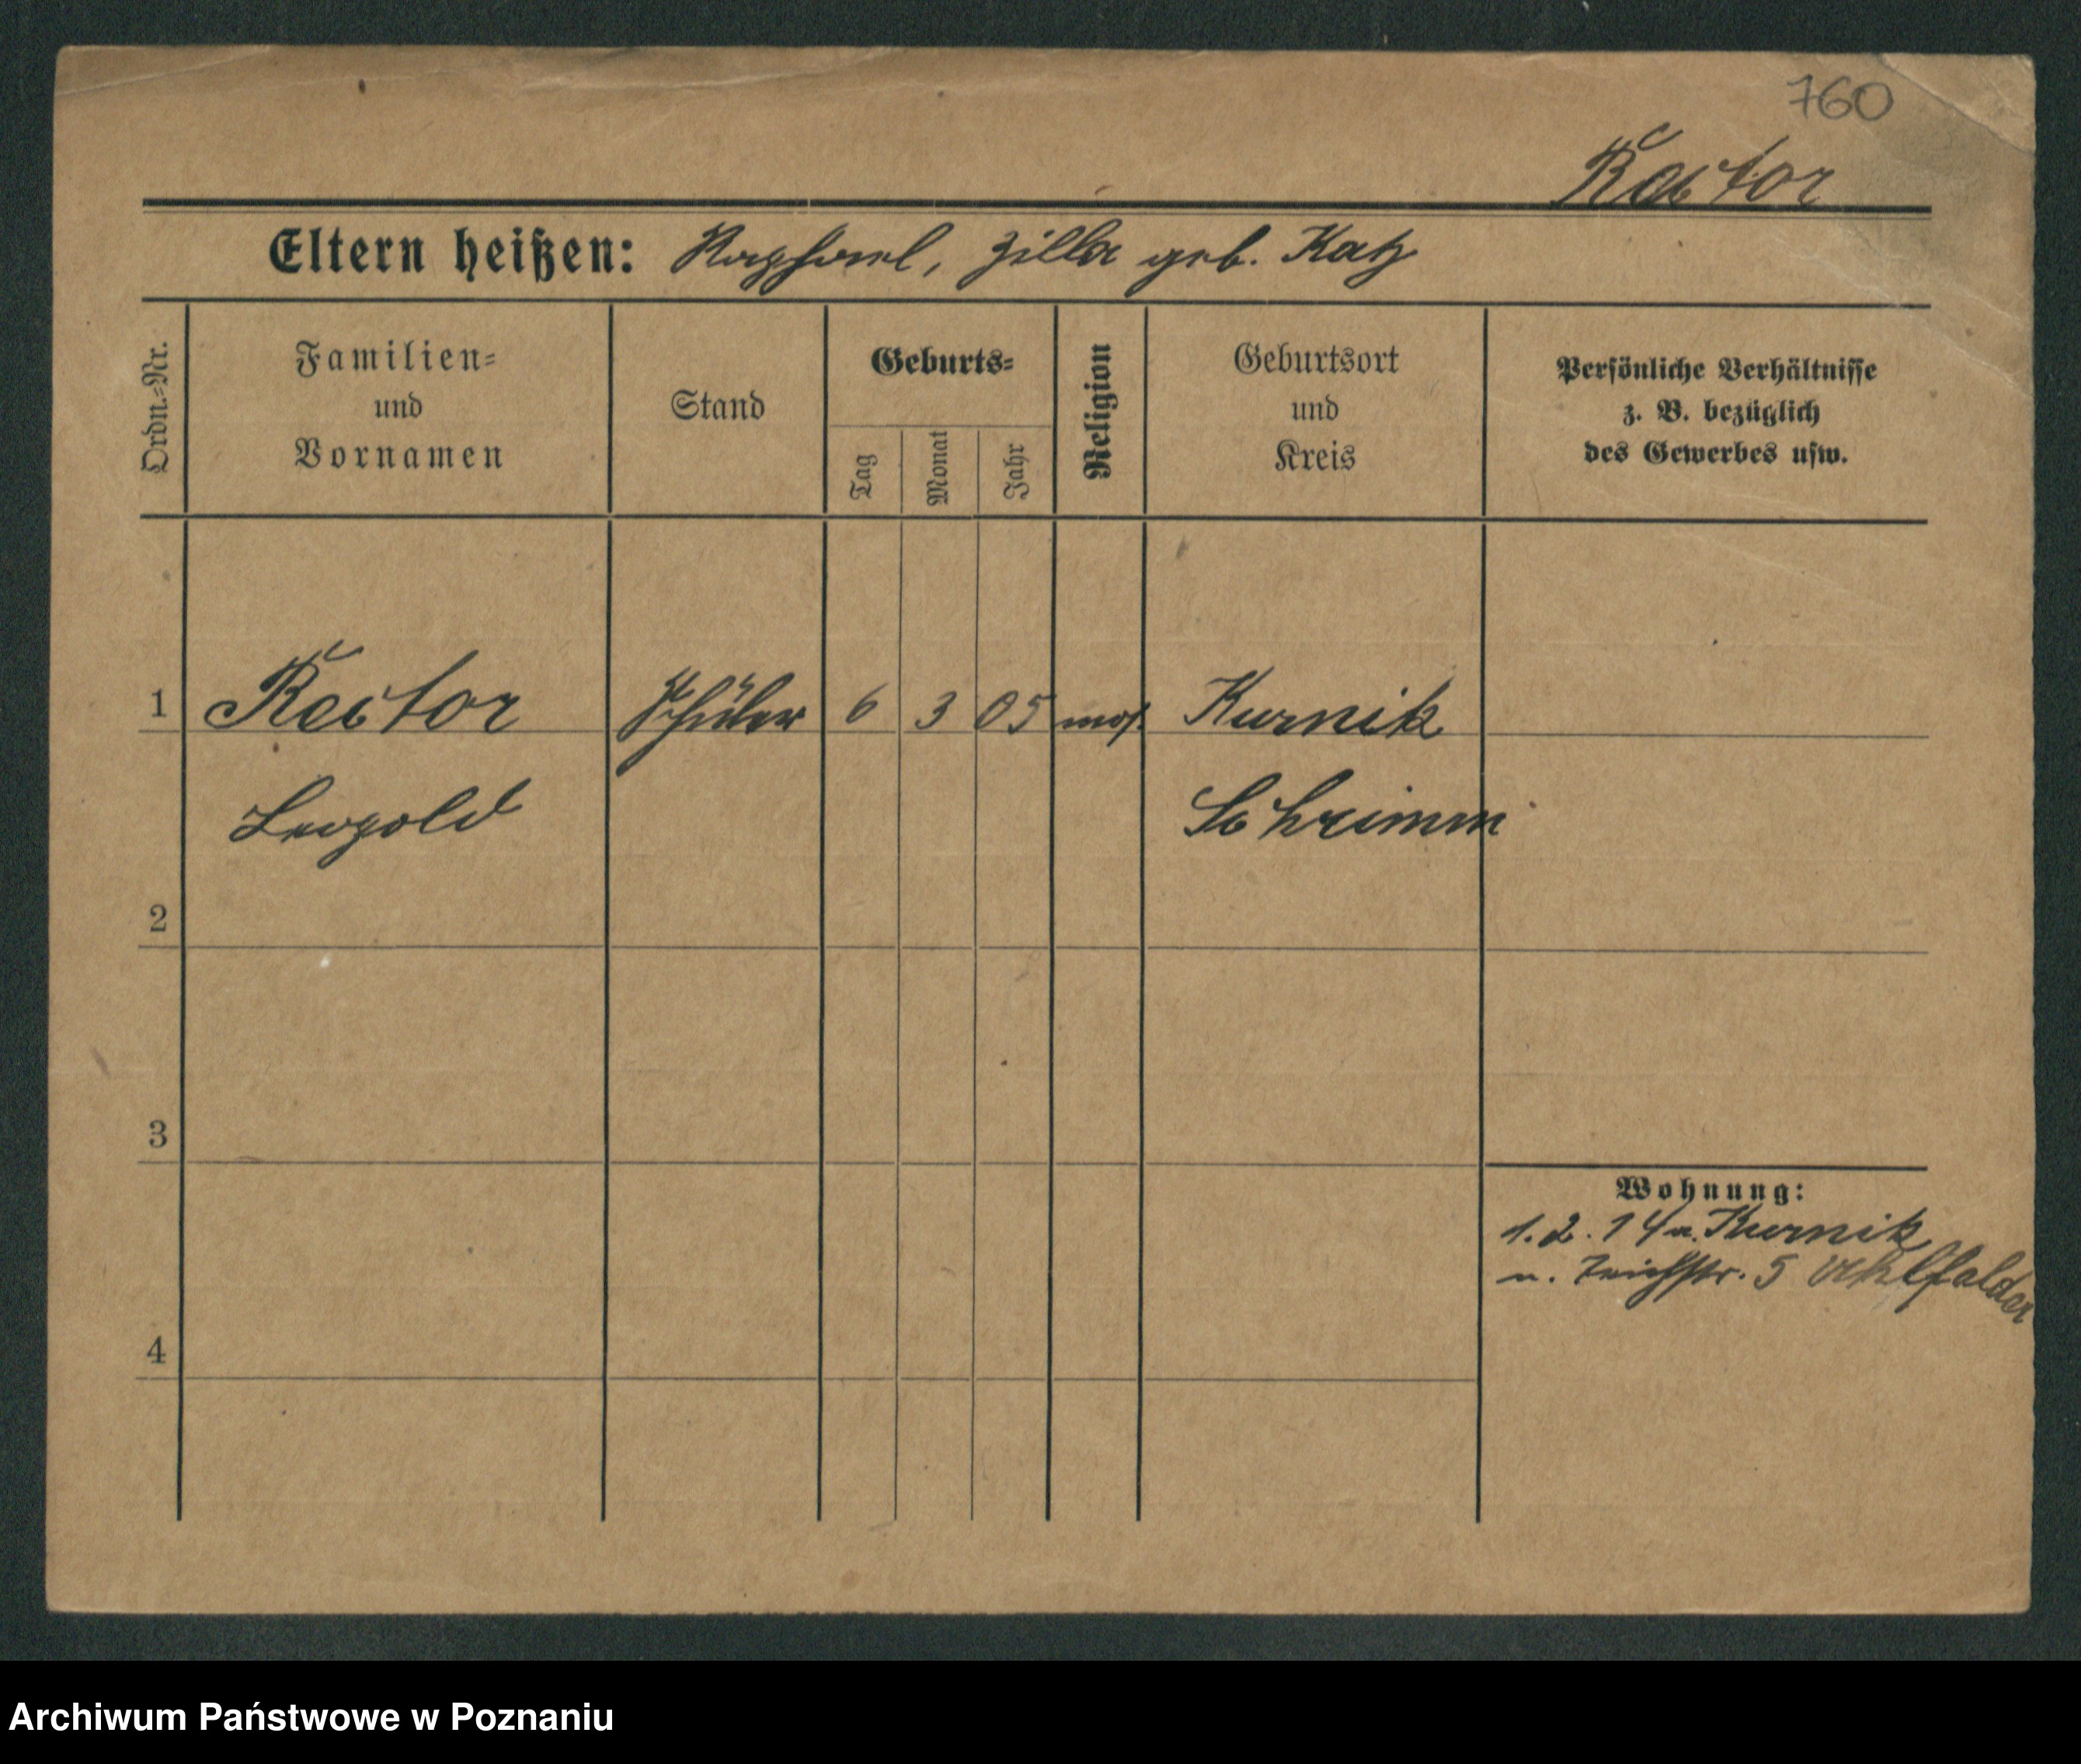 760
Rector
Eltern heißen: Raphael, Zilla geb. Katz
Ordn.=Nr.
Familien=
und
Vornamen
Stand
Geburts=
Tag
Monat
Jahr
Religion
Geburtsort
und
Kreis
Persönliche Verhältnisse
z. B. bezüglich
des Gewerbes usw.
1 Rector Schüler 6 3 05 mos. Kurnik
Leopold Schrimm
2
3
Wohnung:
1. 2. 14 a. Kurnik
n. Teichstr. 5
4
Archiwum Państwowe w Poznaniu